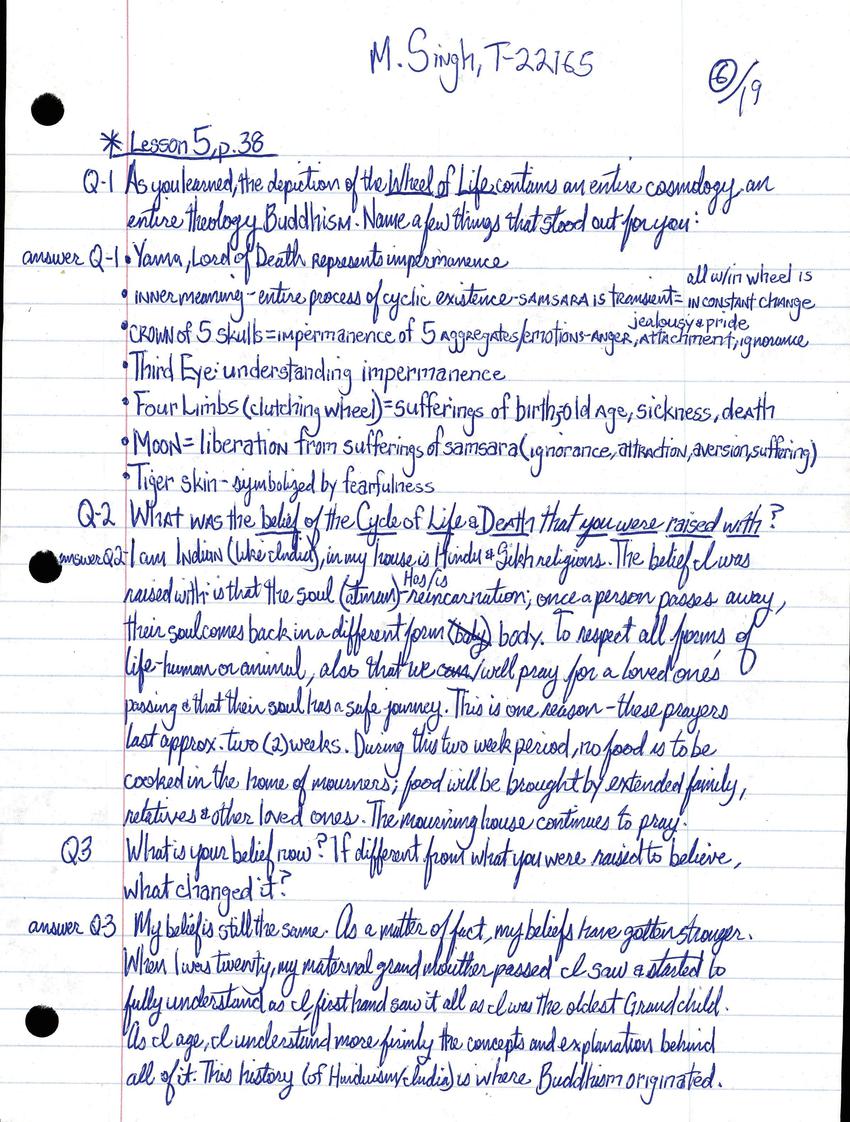 M. Singh, T-22165
6/19
* Lesson 5, p.38
Q-1 As you learned, the depiction of the Wheel of Life contains an entire cosmology an
entire theology Buddhism. Name a few things that stood out for you:
answer Q-1 • Yama, Lord of Death represents impermanence
all w/in wheel is
• inner meaning - entire process of cyclic existence - SAMSARA is transient = IN CONSTANT CHANGE
jealousy & pride
• CROWN of 5 skulls = impermanence of 5 AGGREGATES/EMOTIONS - ANGER, ATTACHMENT, ignorance
• Third Eye: understanding impermanence
• Four Limbs (clutching wheel) = sufferings of birth, old Age, sickness, death
• MOON = liberation from sufferings of samsara (ignorance, attraction, aversion, suffering)
• Tiger skin - symbolized by fearfulness
Q-2 What was the belief of the Cycle of Life & Death that you were raised with?
answer Q2 - I am Indian (like India), in my house is Hindu & Sikh religions. The belief I was
Has/is
raised with is that the soul (atman) - reincarnation; once a person passes away,
their soul comes back in a different form (body) body. To respect all forms of
life - human or animal, also that we can/will pray for a loved one's
passing & that their soul has a safe journey. This is one reason - these prayers
last approx. two (2) weeks. During this two week period, no food is to be
cooked in the home of mourners; food will be brought by extended family,
relatives & other loved ones. The mourning house continues to pray.
Q3 What is your belief now? If different from what you were raised to believe,
what changed it?
answer Q-3 My belief is still the same. As a matter of fact, my beliefs have gotten stronger.
When I was twenty, my maternal grand mouther passed I saw & started to
fully understand as I first hand saw it all as I was the oldest Grandchild.
As I age, I understand more firmly the concepts and explanation behind
all of it. This history (of Hinduism/India) is where Buddhism originated.